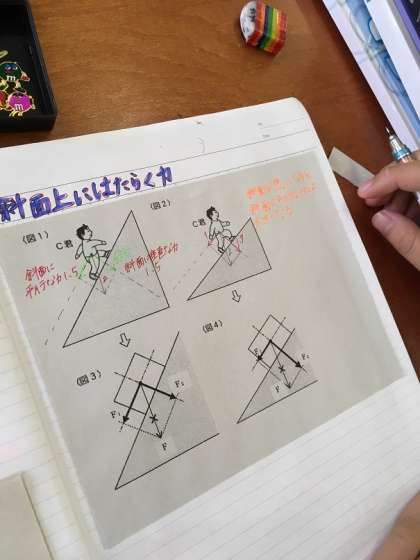 斜面上にはたらく力
(図1)
C君
斜面に
平行な力 1.5
斜面に垂直な力
1.5
(図2)
C君
(図3)
F₁
F₂
F
(図4)
F₁
F₂
F